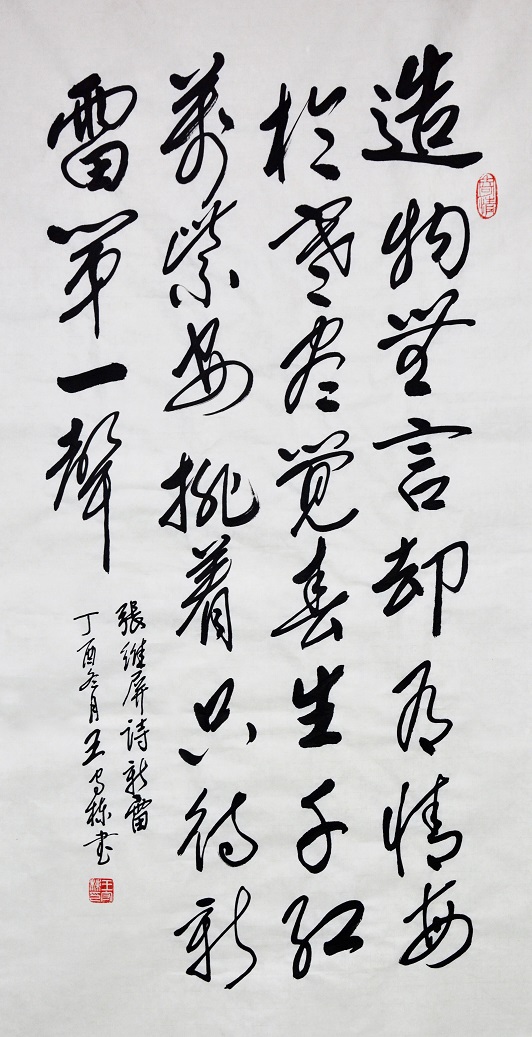 造物無言却有情每
於寒尽覺春生千红
萬紫安排着只待新
雷第一聲
張維屏詩新雷
丁酉冬月王守栋書